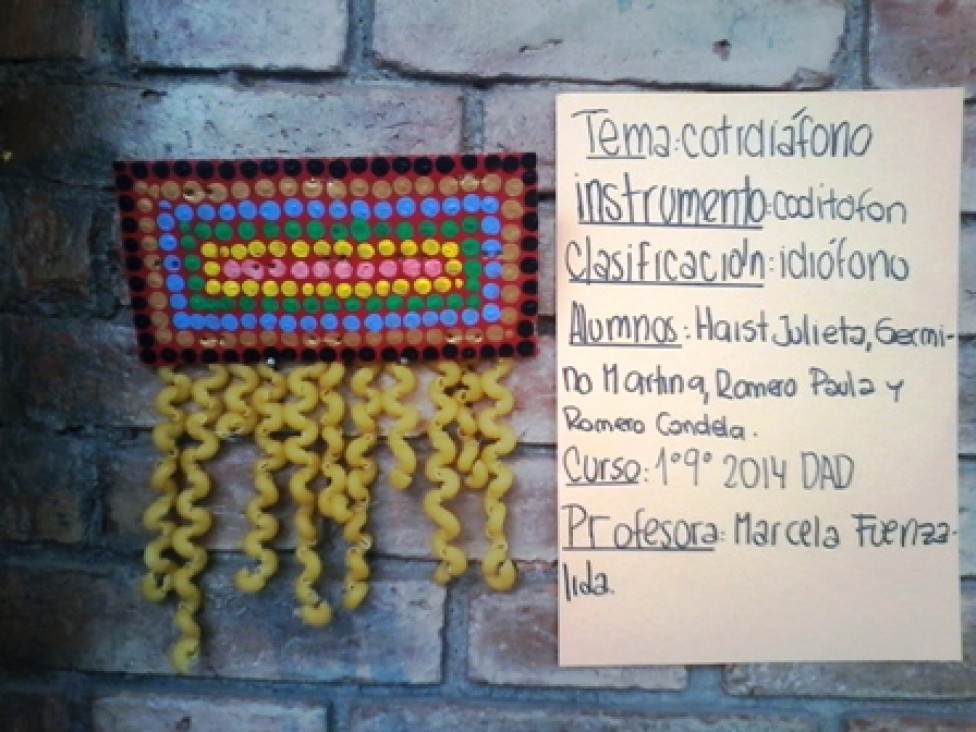 Tema: cotidiáfono
instrumento: coditofon
Clasificación: idiófono
Alumnos: Haist Julieta, Germi-
no Martina, Romero Paula y
Romero Candela.
Curso: 1°9° 2014 DAD
Profesora: Marcela Fuenza-
lida.